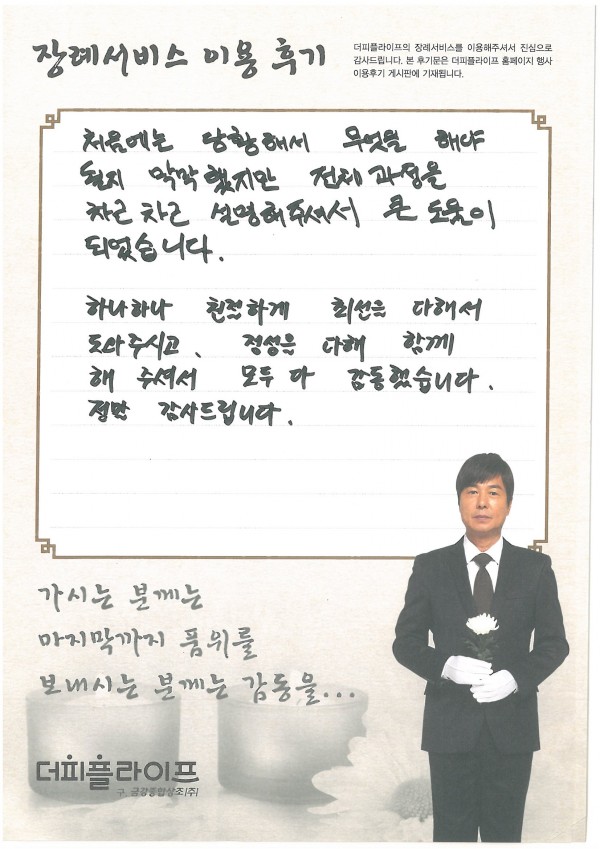 장례서비스 이용 후기
더피플라이프의 장례서비스를 이용해주셔서 진심으로
감사드립니다. 본 후기문은 더피플라이프 홈페이지 행사
이용후기 게시판에 기재됩니다.
처음에는 당황해서 무엇을 해야
될지 막막했지만 전체과정을
차근차근 설명해주셔서 큰 도움이
되었습니다.
하나하나 친절하게 최선을 다해서
도와주시고, 정성을 다해 함께
해 주셔서 모두 다 감동했습니다.
정말 감사드립니다.
가시는 분께는
마지막까지 품위를
보내시는 분께는 감동을...
더피플라이프
구. 금강종합상조(주)